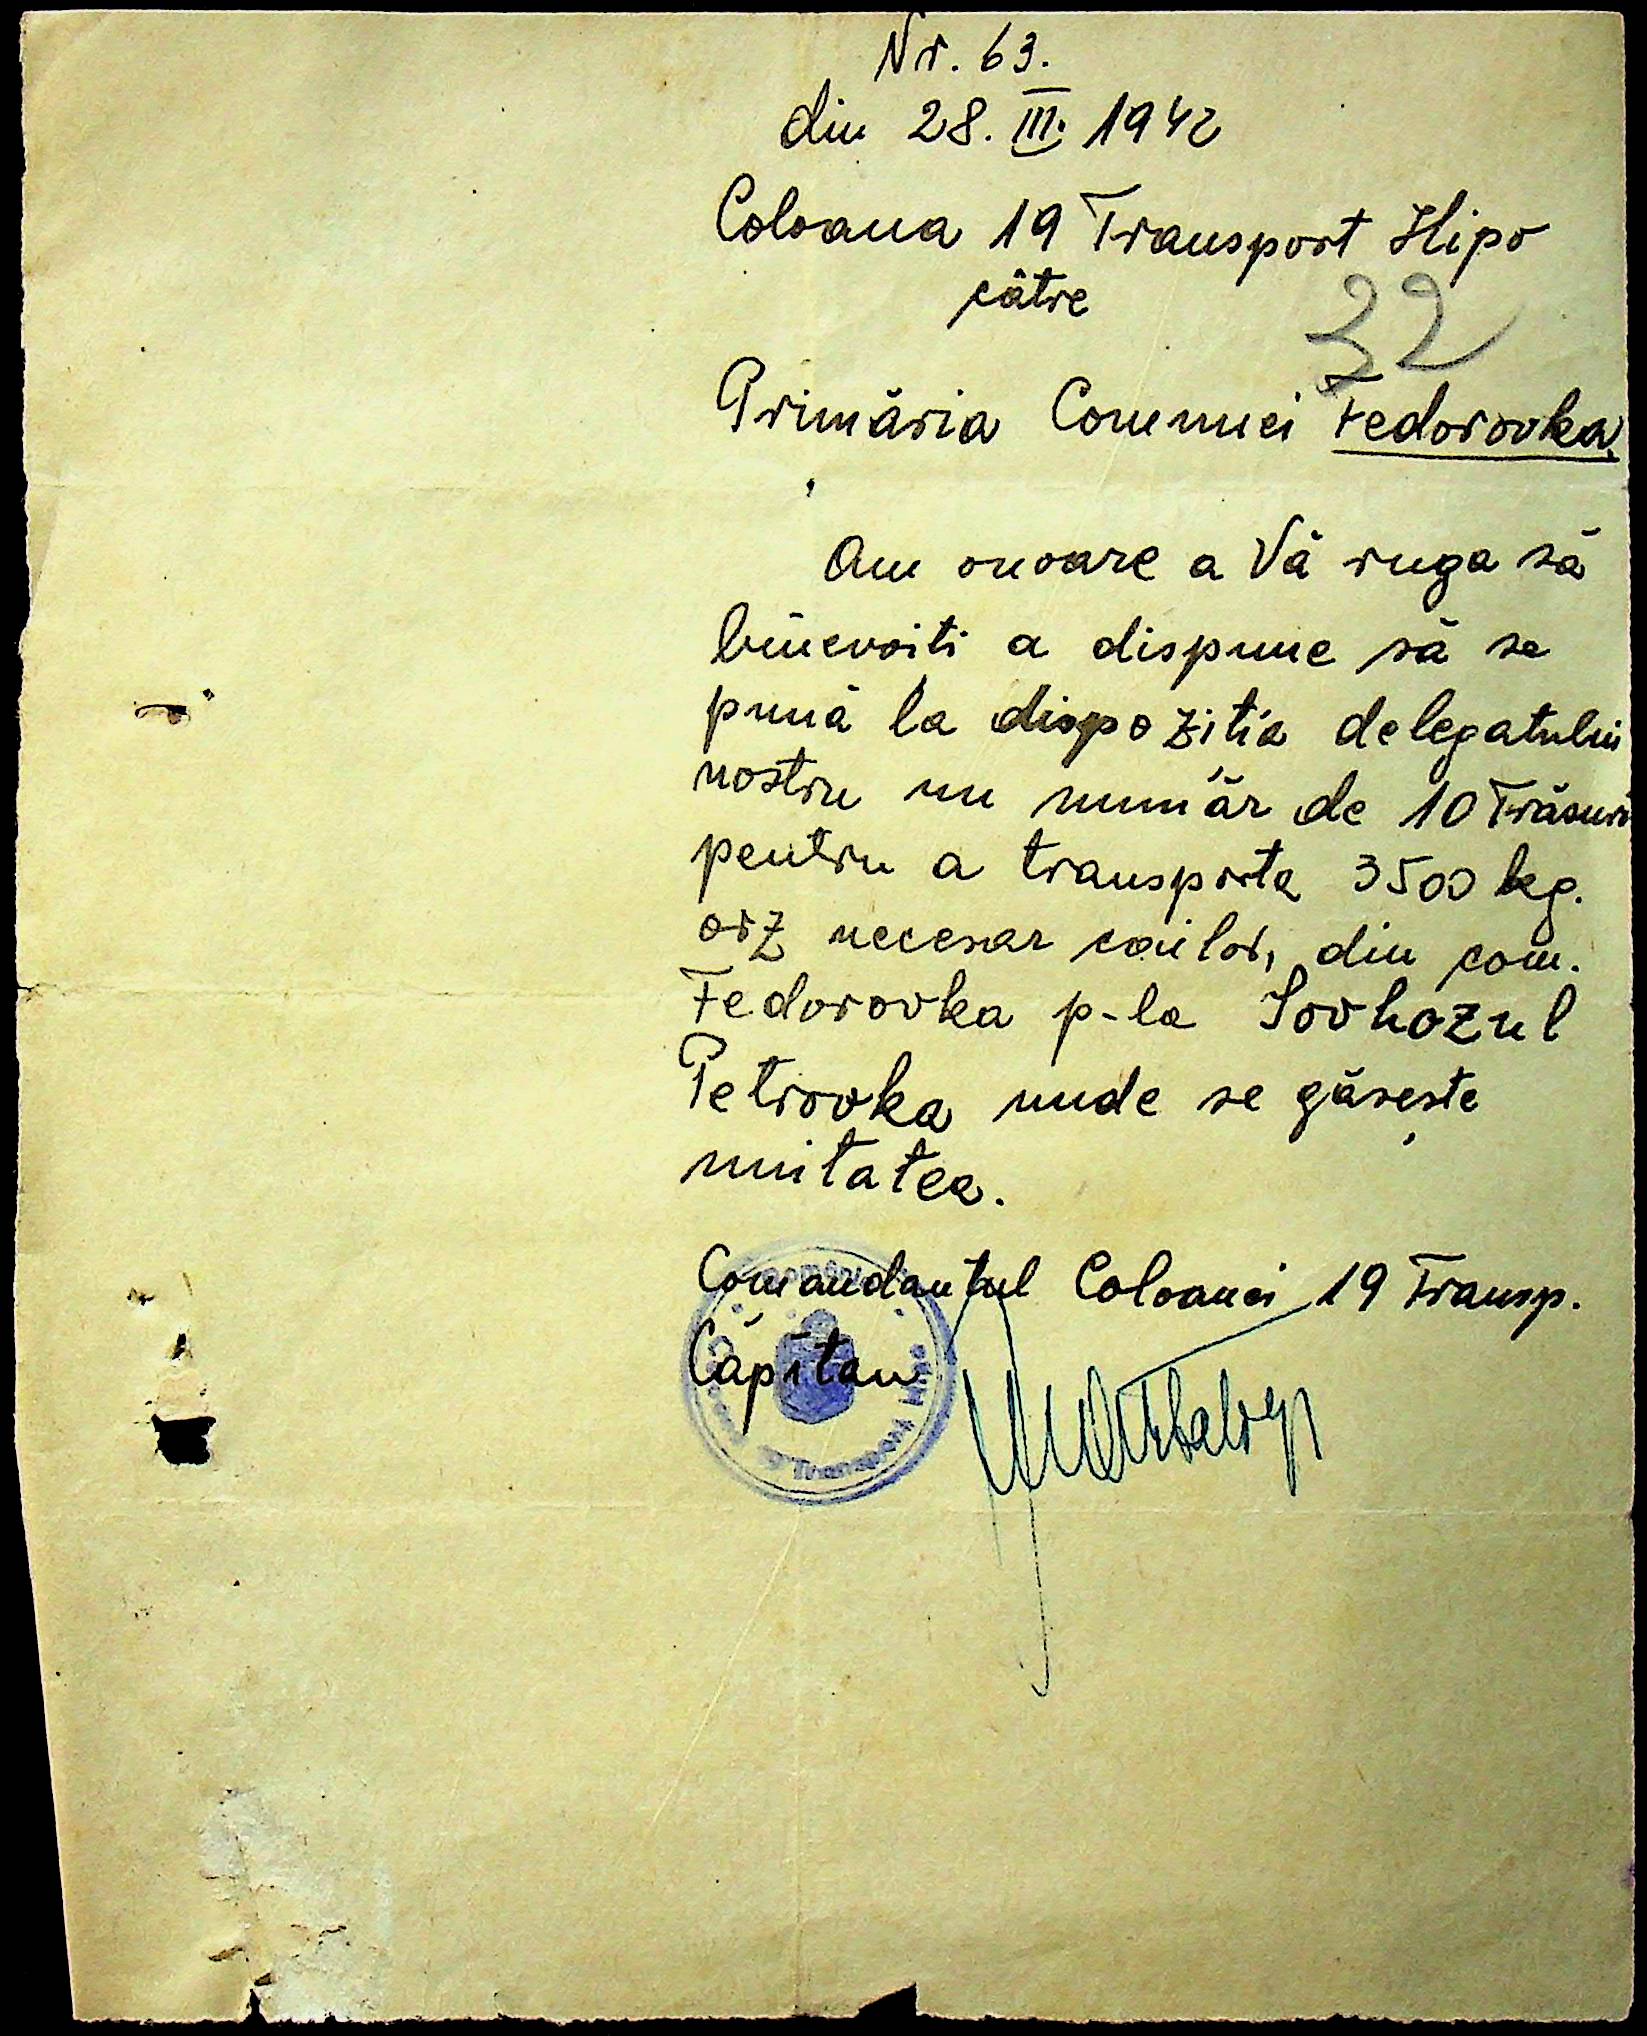 Nr. 63.
din 28. III. 1942
Coloana 19 Transport Hipo
către
22
Primăria Comunei Fedorovka.
Am onoare a Vă ruga să
binevoiti a dispune să se
pună la dispozitia delegatului
nostru un număr de 10 Trăsuri
pentru a transporta 3500 kg.
orz necesar cailor, din com.
Fedorovka p-la Sovhozul
Petrovka unde se găsește
unitatea.
Comandantul Coloanei 19 Transp.
Căpitan
Transport Hipo